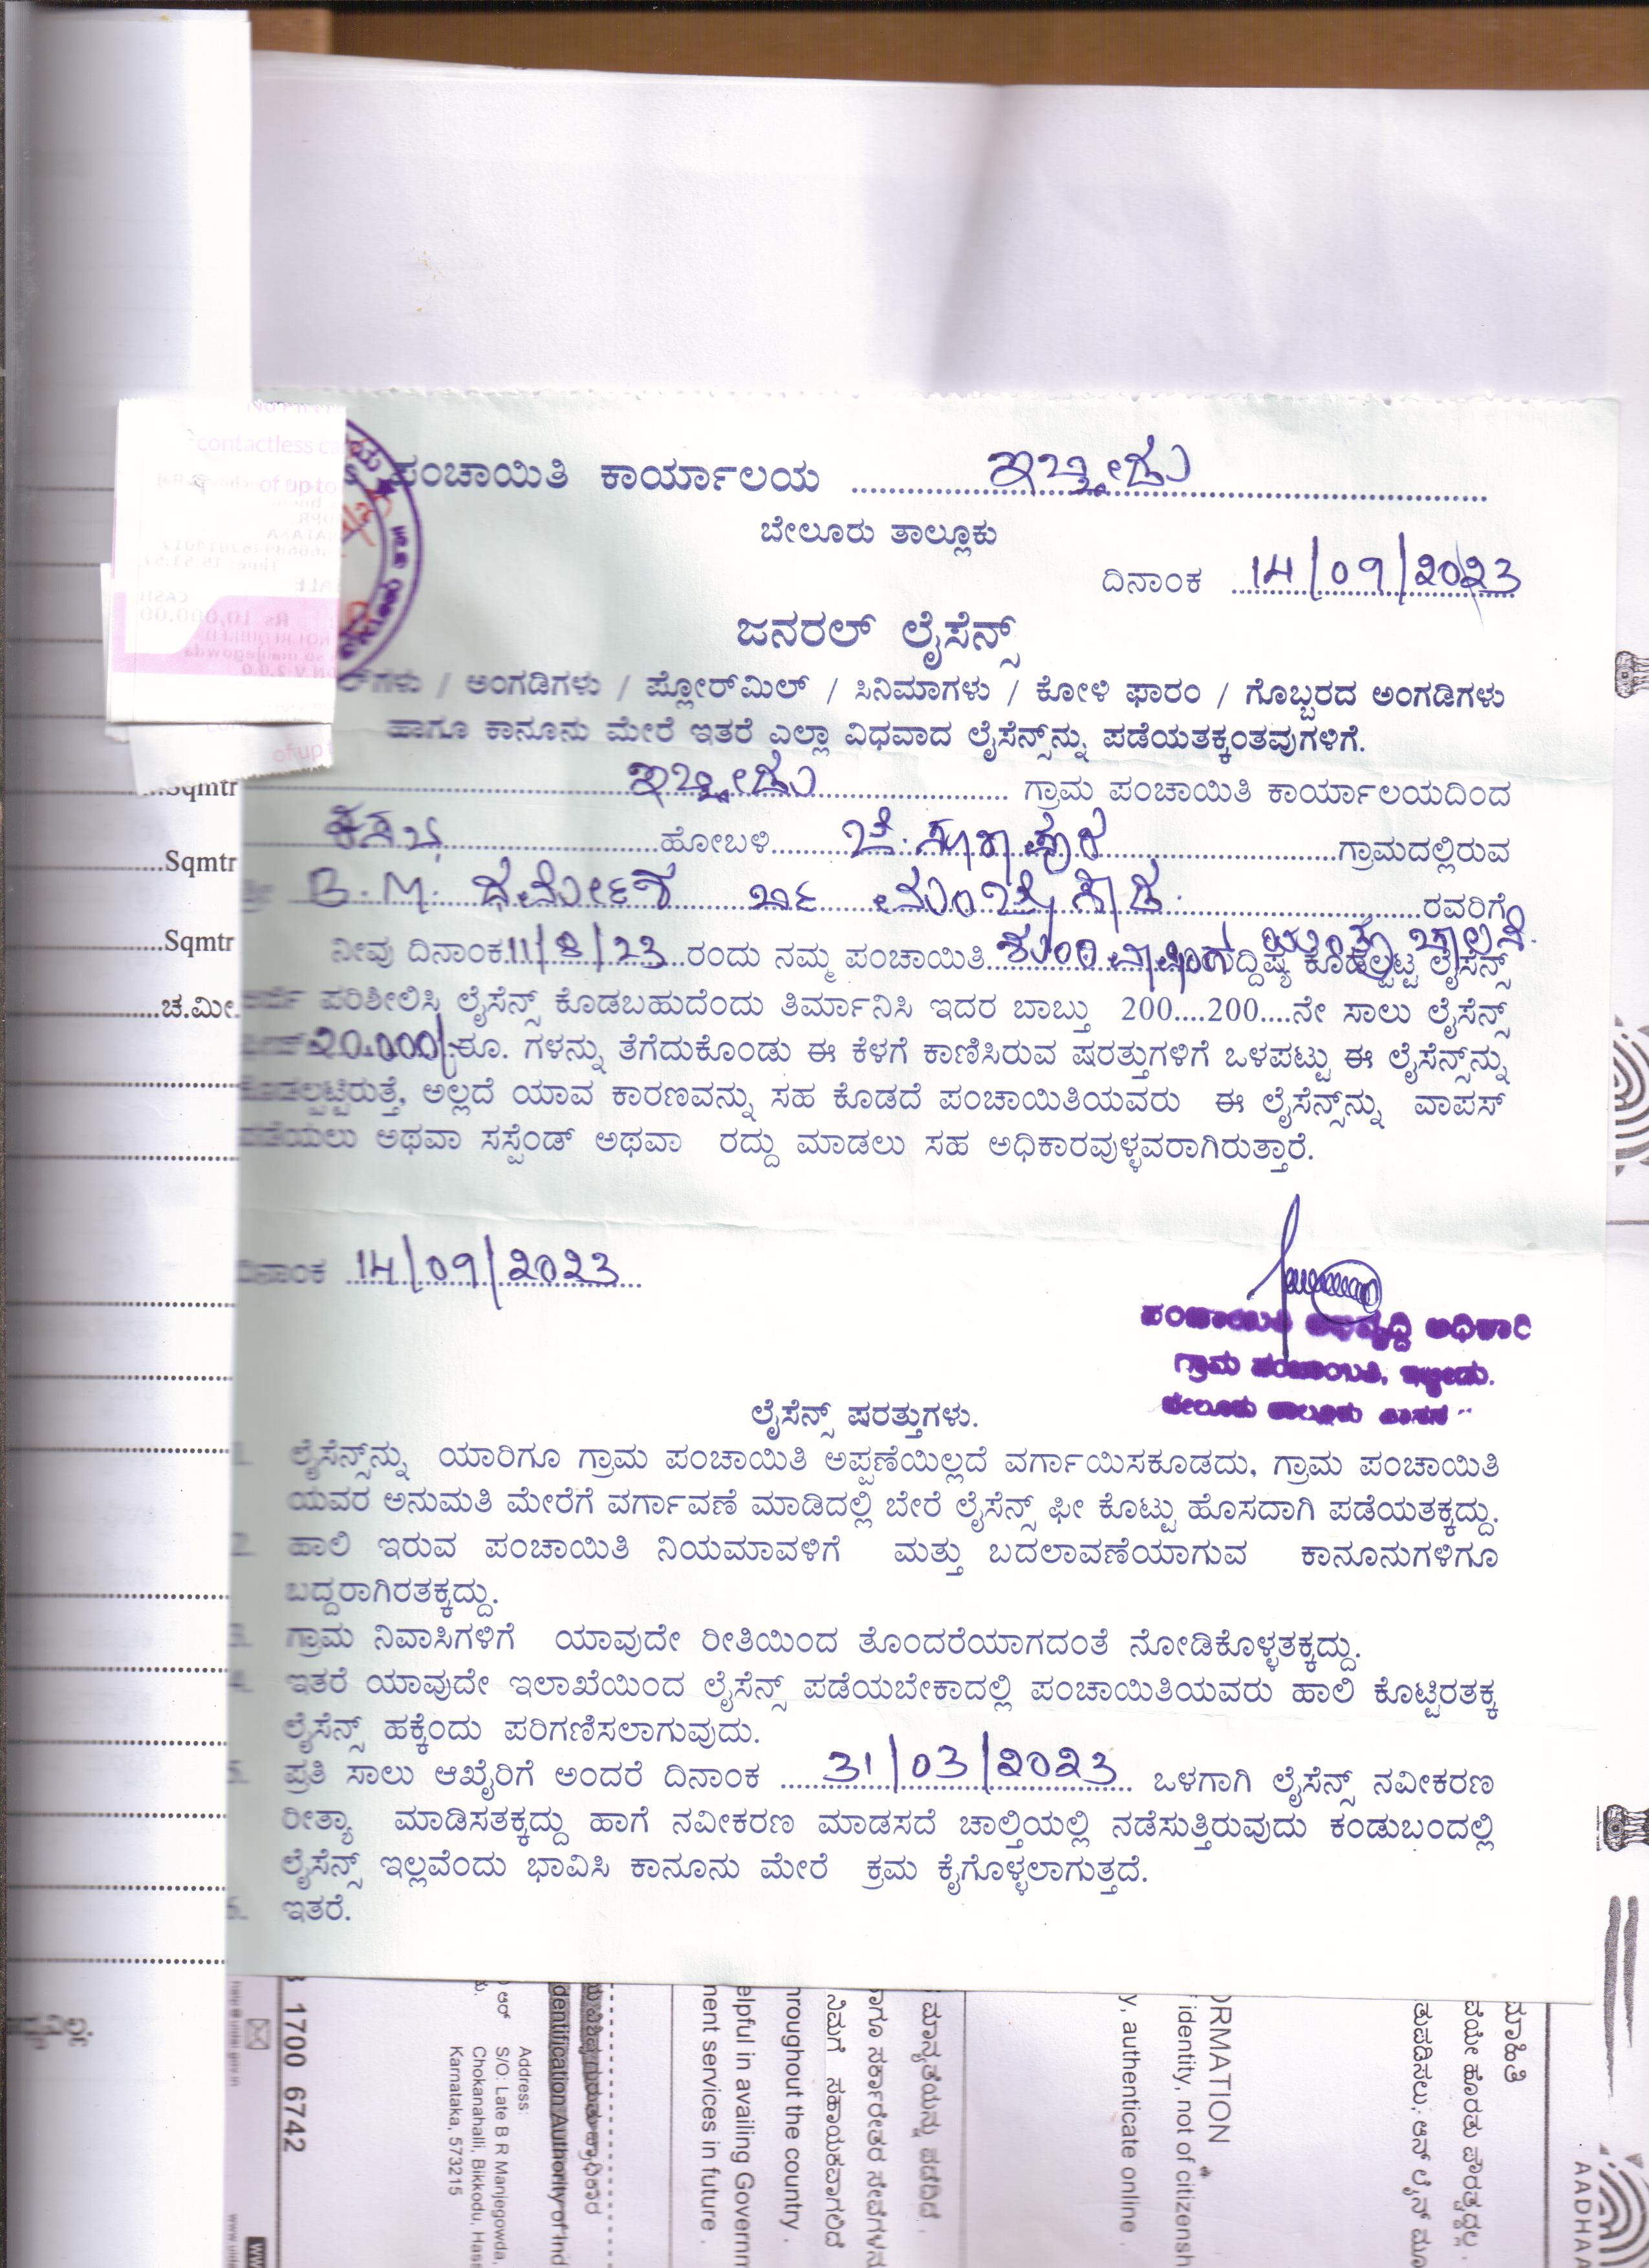 contactless
of up to
ಪಂಚಾಯಿತಿ ಕಾರ್ಯಾಲಯ ಇಬ್ಬೀಡು
ಬೇಲೂರು ತಾಲ್ಲೂಕು
ದಿನಾಂಕ 14/09/2023
ಜನರಲ್ ಲೈಸೆನ್ಸ್
/ ಅಂಗಡಿಗಳು / ಪ್ಲೋರ್‌ಮಿಲ್ / ಸಿನಿಮಾಗಳು / ಕೋಳಿ ಫಾರಂ / ಗೊಬ್ಬರದ ಅಂಗಡಿಗಳು
ಹಾಗೂ ಕಾನೂನು ಮೇರೆ ಇತರೆ ಎಲ್ಲಾ ವಿಧವಾದ ಲೈಸೆನ್ಸ್‌ನ್ನು ಪಡೆಯತಕ್ಕಂತವುಗಳಿಗೆ.
ಇಬ್ಬೀಡು ಗ್ರಾಮ ಪಂಚಾಯಿತಿ ಕಾರ್ಯಾಲಯದಿಂದ
ಕಸಬ ಹೋಬಳಿ ಗ್ರಾಮದಲ್ಲಿರುವ
B.M. ಧರ್ಮೇಶ ಬಿನ್ ಮಂಜೇಗೌಡ ರವರಿಗೆ
ನೀವು ದಿನಾಂಕ 11/8/23 ರಂದು ನಮ್ಮ ಪಂಚಾಯಿತಿ ಕೊಡಲ್ಪಟ್ಟ ಲೈಸೆನ್ಸ್
ಅರ್ಜಿ ಪರಿಶೀಲಿಸಿ ಲೈಸೆನ್ಸ್ ಕೊಡಬಹುದೆಂದು ತಿರ್ಮಾನಿಸಿ ಇದರ ಬಾಬ್ತು 200....200....ನೇ ಸಾಲು ಲೈಸೆನ್ಸ್
20.000/- ರೂ. ಗಳನ್ನು ತೆಗೆದುಕೊಂಡು ಈ ಕೆಳಗೆ ಕಾಣಿಸಿರುವ ಷರತ್ತುಗಳಿಗೆ ಒಳಪಟ್ಟು ಈ ಲೈಸೆನ್ಸ್‌ನ್ನು
ಕೊಡಲ್ಪಟ್ಟಿರುತ್ತೆ, ಅಲ್ಲದೆ ಯಾವ ಕಾರಣವನ್ನು ಸಹ ಕೊಡದೆ ಪಂಚಾಯಿತಿಯವರು ಈ ಲೈಸೆನ್ಸ್‌ನ್ನು ವಾಪಸ್
ಪಡೆಯಲು ಅಥವಾ ಸಸ್ಪೆಂಡ್ ಅಥವಾ ರದ್ದು ಮಾಡಲು ಸಹ ಅಧಿಕಾರವುಳ್ಳವರಾಗಿರುತ್ತಾರೆ.
ದಿನಾಂಕ 14/09/2023
ಪಂಚಾಯಿತಿ ಅಭಿವೃದ್ಧಿ ಅಧಿಕಾರಿ
ಗ್ರಾಮ ಪಂಚಾಯಿತಿ, ಇಬ್ಬೀಡು.
ಬೇಲೂರು ತಾಲೂಕು ಹಾಸನ
ಲೈಸೆನ್ಸ್ ಷರತ್ತುಗಳು.
1. ಲೈಸೆನ್ಸ್‌ನ್ನು ಯಾರಿಗೂ ಗ್ರಾಮ ಪಂಚಾಯಿತಿ ಅಪ್ಪಣೆಯಿಲ್ಲದೆ ವರ್ಗಾಯಿಸಕೂಡದು, ಗ್ರಾಮ ಪಂಚಾಯಿತಿ
ಯವರ ಅನುಮತಿ ಮೇರೆಗೆ ವರ್ಗಾವಣೆ ಮಾಡಿದಲ್ಲಿ ಬೇರೆ ಲೈಸೆನ್ಸ್ ಫೀ ಕೊಟ್ಟು ಹೊಸದಾಗಿ ಪಡೆಯತಕ್ಕದ್ದು.
2. ಹಾಲಿ ಇರುವ ಪಂಚಾಯಿತಿ ನಿಯಮಾವಳಿಗೆ ಮತ್ತು ಬದಲಾವಣೆಯಾಗುವ ಕಾನೂನುಗಳಿಗೂ
ಬದ್ದರಾಗಿರತಕ್ಕದ್ದು.
3. ಗ್ರಾಮ ನಿವಾಸಿಗಳಿಗೆ ಯಾವುದೇ ರೀತಿಯಿಂದ ತೊಂದರೆಯಾಗದಂತೆ ನೋಡಿಕೊಳ್ಳತಕ್ಕದ್ದು.
4. ಇತರೆ ಯಾವುದೇ ಇಲಾಖೆಯಿಂದ ಲೈಸೆನ್ಸ್ ಪಡೆಯಬೇಕಾದಲ್ಲಿ ಪಂಚಾಯಿತಿಯವರು ಹಾಲಿ ಕೊಟ್ಟಿರತಕ್ಕ
ಲೈಸೆನ್ಸ್ ಹಕ್ಕೆಂದು ಪರಿಗಣಿಸಲಾಗುವುದು.
5. ಪ್ರತಿ ಸಾಲು ಆಖೈರಿಗೆ ಅಂದರೆ ದಿನಾಂಕ 31/03/2023 ಒಳಗಾಗಿ ಲೈಸೆನ್ಸ್ ನವೀಕರಣ
ರೀತ್ಯಾ ಮಾಡಿಸತಕ್ಕದ್ದು ಹಾಗೆ ನವೀಕರಣ ಮಾಡಸದೆ ಚಾಲ್ತಿಯಲ್ಲಿ ನಡೆಸುತ್ತಿರುವುದು ಕಂಡುಬಂದಲ್ಲಿ
ಲೈಸೆನ್ಸ್ ಇಲ್ಲವೆಂದು ಭಾವಿಸಿ ಕಾನೂನು ಮೇರೆ ಕ್ರಮ ಕೈಗೊಳ್ಳಲಾಗುತ್ತದೆ.
6. ಇತರೆ.
Sqmtr
Sqmtr
Sqmtr
ಚ.ಮೀ.
1700 6742
Address:
S/O: Late B R Manjegowda,
Chokanahalli, Bikkodu, Hass
Karnataka, 573215
dentification Authority of Ind
nent services in future .
elpful in availing Governm
hroughout the country .
ನಿಮಗೆ ಸಹಾಯಕವಾಗಲಿದೆ
ಮಾನ್ಯತೆಯನ್ನು ಪಡೆದಿದೆ .
y, authenticate online .
identity, not of citizensh
ORMATION
ಮಾಹಿತಿ
AADHAA